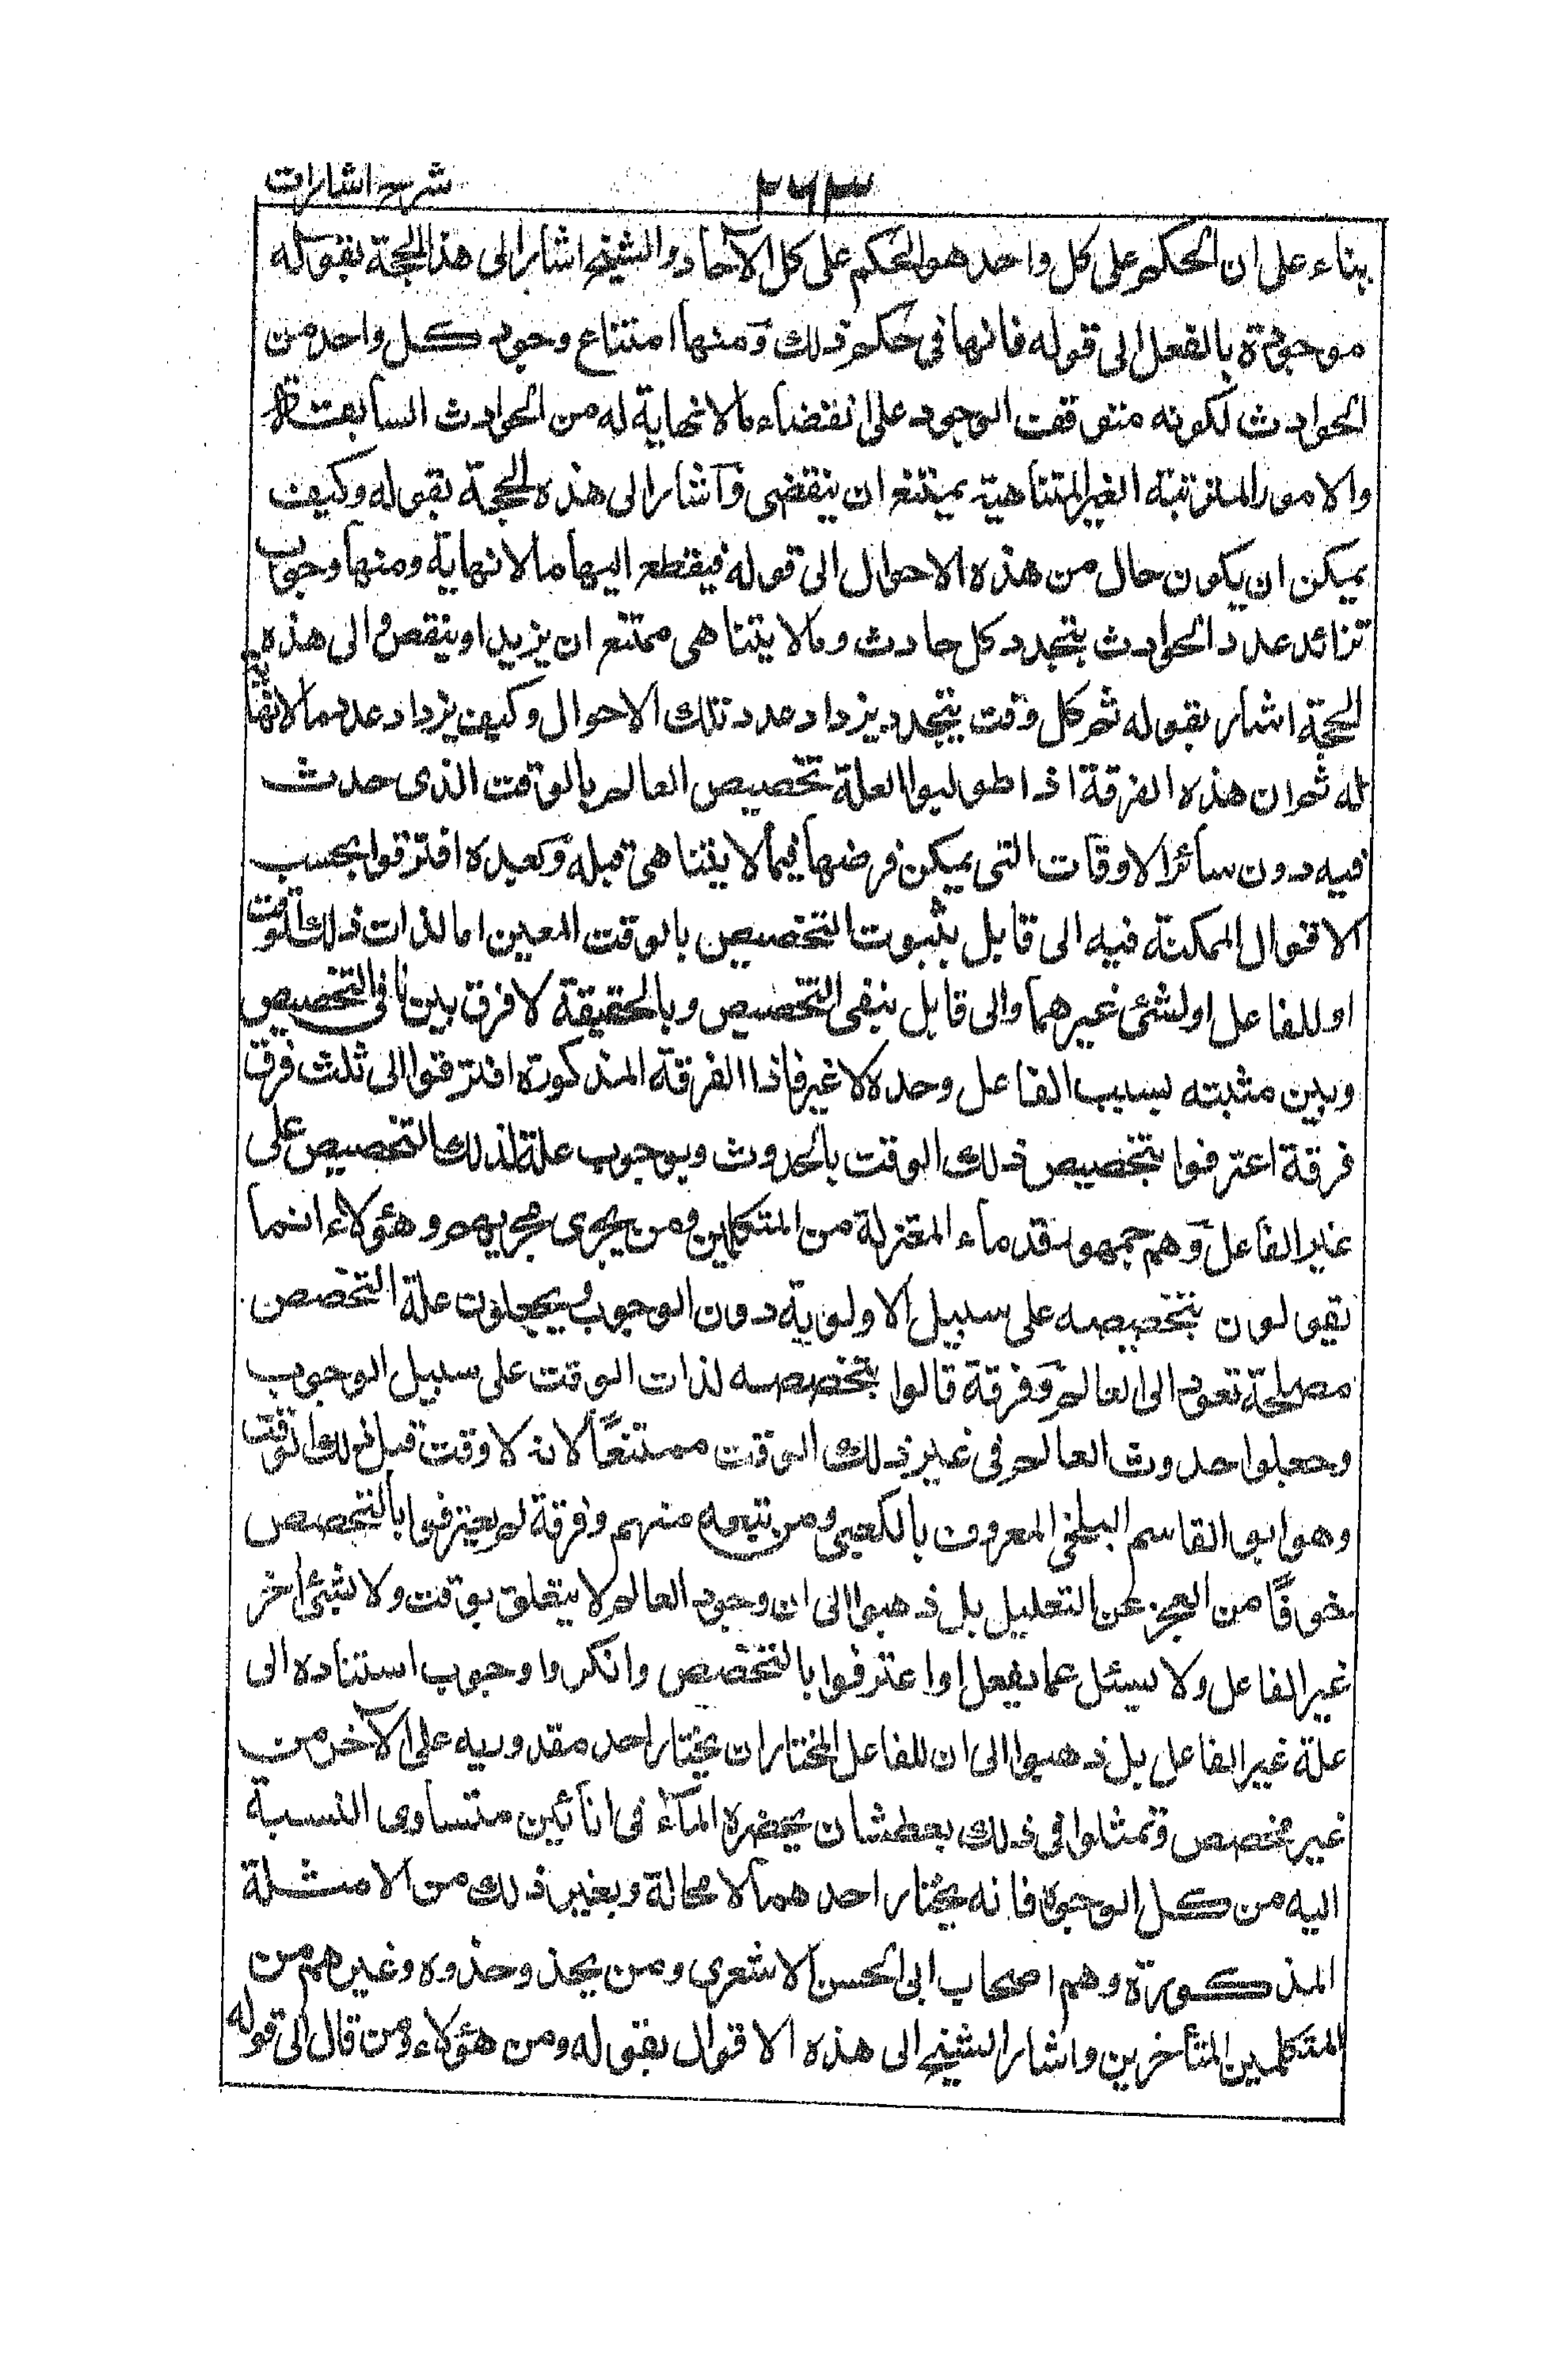 شرح اشارات ٢٦٣
بناء على ان الحكم على كل واحد هو الحكم على كل الآحاد والشيخ اشار الى هذا الحجة بقوله
موجودة بالفعل الى قوله فانها فى حكم ذلك ومنها امتناع وجود كل واحد من
الحوادث لكونه متوقف الوجود على انقضاء مالا نهاية له من الحوادث السابقة
والامور المترتبة الغير المتناهية يمتنع ان ينقضى واشار الى هذه الحجة بقوله وكيف
يمكن ان يكون حال من هذه الاحوال الى قوله فيقطع اليها مالا نهاية ومنها وجوب
تزائد عدد الحوادث بتجدد كل حادث ومالا يتناهى ممتنع ان يزيد او ينقص والى هذه
الحجة اشار بقوله ثم كل وقت يتجدد يزداد عدد تلك الاحوال وكيف يزداد عدد مالا نهاية
له ثم ان هذه الفرقة اذا طولبوا العلة تخصيص العالم بالوقت الذى حدث
فيه دون سائر الاوقات التى يمكن فرضها فيما لا يتناهى قبله وبعده افترقوا بحسب
الاقوال الممكنة فيه الى قابل بثبوت التخصيص بالوقت المعين اما لذات ذلك الوقت
او للفاعل او لشئ غيرهما والى قابل بنفى التخصيص وبالحقيقة لا فرق بين نافى التخصيص
وبين مثبته بسبب الفاعل وحده لا غير فاذا الفرقة المذكورة افترقوا الى ثلث فرق
فرقة اعترفوا بتخصيص ذلك الوقت بالحدوث وبوجوب علة لذلك التخصيص على
غير الفاعل وهم جمهور قدماء المعتزلة من المتكلمين ومن يجرى مجريهم وهؤلاء انما
يقولون بتخصيصه على سبيل الاولوية دون الوجوب ويجعلون علة التخصص
مصلحة تعود الى العالم وفرقة قالوا بتخصصه لذات الوقت على سبيل الوجوب
وجعلوا حدوث العالم فى غير ذلك الوقت ممتنعًا لانه لا وقت قبل ذلك الوقت
وهو ابو القاسم البلخى المعروف بالكعبى ومن تبعه منهم وفرقة لم يعترفوا بالتخصص
خوفًا من العجز عن التعليل بل ذهبوا الى ان وجود العالم لا يتعلق بوقت ولا بشئ آخر
غير الفاعل ولا يسئل عما يفعل او اعترفوا بالتخصص وانكروا وجوب استناده الى
علة غير الفاعل بل ذهبوا الى ان للفاعل المختار ان يختار احد مقدوريه على الآخر من
غير مخصص وتمثلوا فى ذلك بعطشان يحضره المآء فى انائين متساوى النسبة
اليه من كل الوجوه فانه يختار احدهما لا محالة وبغير ذلك من الامثلة
المذكورة وهم اصحاب ابى الحسن الاشعرى ومن يحذو حذوه وغيرهم من
المتكلمين المتأخرين واشار الشيخ الى هذه الاقوال بقوله ومن هؤلاء ومن قال الى قوله